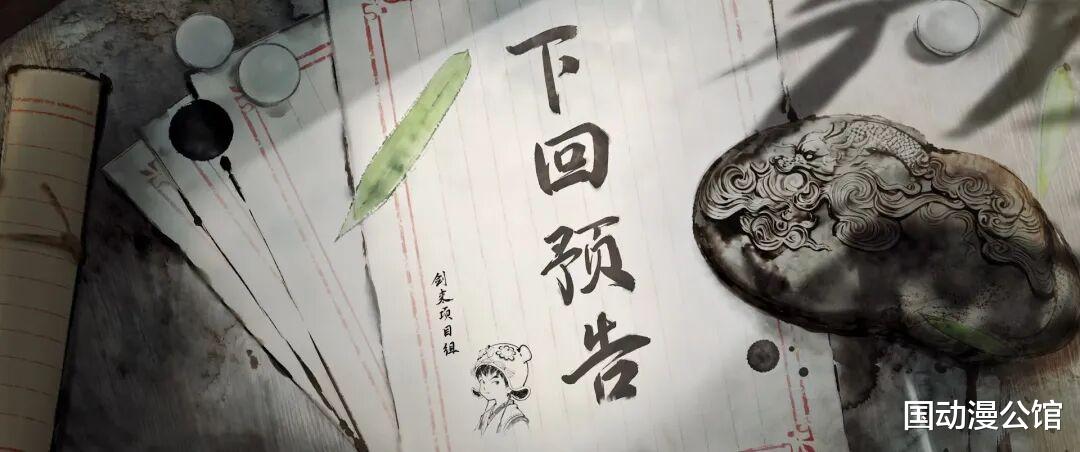 下回预告
剑来项目组
国动漫公馆